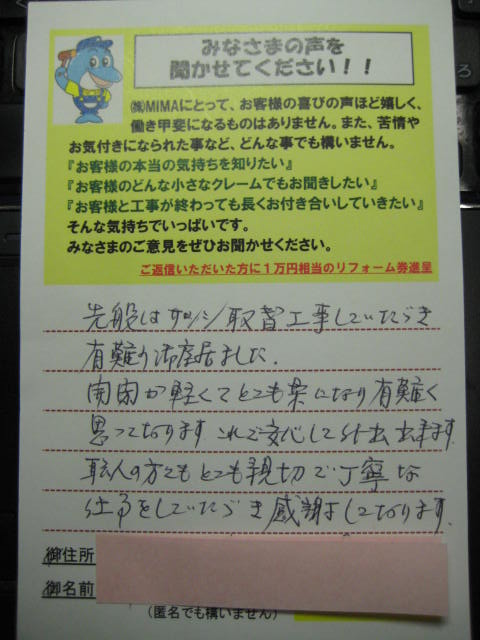 みなさまの声を
聞かせてください！！
㈱MIMAにとって、お客様の喜びの声ほど嬉しく、
働き甲斐になるものはありません。また、苦情や
お気付きになられた事など、どんな事でも構いません。
『お客様の本当の気持ちを知りたい』
『お客様のどんな小さなクレームでもお聞きしたい』
『お客様と工事が終わっても長くお付き合いしていきたい』
そんな気持ちでいっぱいです。
みなさまのご意見をぜひお聞かせください。
ご返信いただいた方に１万円相当のリフォーム券進呈
先般はサッシ取替工事していただき
有難う御座居ました.
開閉が軽くてとても楽になり有難く
思っております これで安心して外出出来ます.
職人の方でもとても親切で丁寧な
仕事をしていただき感謝しております.
御住所
御名前
(匿名でも構いません)
ろ